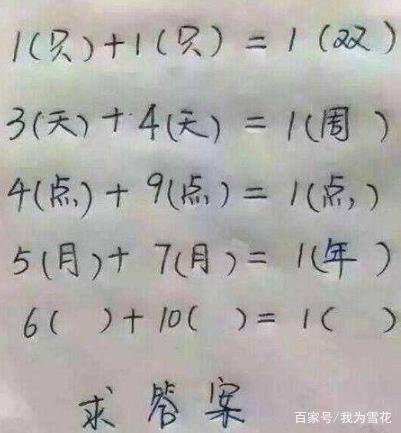 1(只)+1(只)=1(双)
3(天)+4(天)=1(周)
4(点)+9(点)=1(点)
5(月)+7(月)=1(年)
6( )+10( )=1( )
求答案
百家号/我为雪花